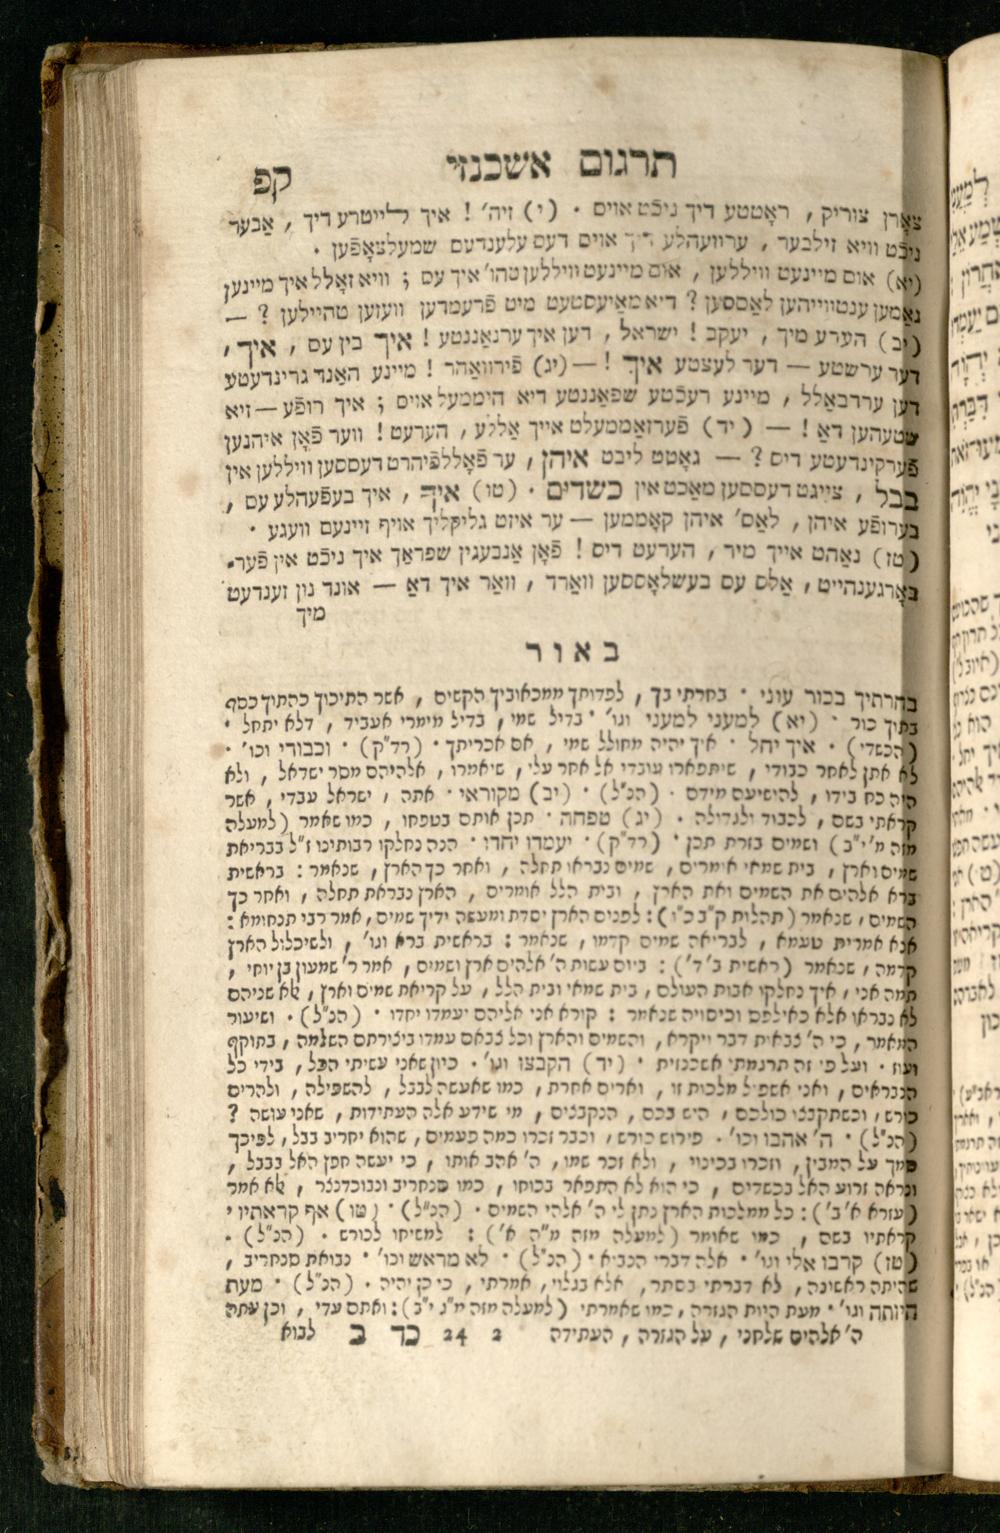 תרגום אשכנזי קפ
צאָרן צוריק , ראָטטע דיך ניכֿט אויס . (י) זיה' ! איך לייטרע דיך , אַבער
ניכֿט וויא זילבער , ערוועהלע דיך אויס דעם עלענדעם שמעלצאָפֿען .
(יא) אום מיינעט וויללען , אום מיינעט וויללען טהו' איך עס ; וויא זאָלל איך מיינען
נאַמען ענטווייהען לאַססען ? דיא מאַיעסטעט מיט פֿרעמדען וועזען טהיילען ? —
(יב) הערע מיך , יעקב ! ישראל , דען איך ערנאַננטע ! איך בין עס , איך ,
דער ערשטע — דער לעצטע איך ! — (יג) פֿירוואַהר ! מיינע האַנד גרינדעטע
דען ערדבאַלל , מיינע רעכֿטע שפאַננטע דיא היממעל אויס ; איך רופֿע — זיא
שטעהען דאַ ! — (יד) פֿערזאַממעלט אייך אַללע , הערעט ! ווער פֿאָן איהנען
פֿערקינדעטע דיס ? — גאָטט ליבט איהן , ער פֿאָללפֿיהרט דעססען וויללען אין
בבל , צייגט דעססען מאַכט אין כשדים . (טו) איך , איך בעפֿעהלע עס ,
בערופֿע איהן , לאַס' איהן קאָממען — ער איזט גליקליך אויף זיינעם וועגע .
(טז) נאַהט אייך מיר , הערעט דיס ! פֿאָן אַנבעגין שפראַך איך ניכֿט אין פֿער-
באָרגענהייט , אַלס עס בעשלאָססען וואַרד , וואַר איך דאַ — אונד נון זענדעט
מיך
באור
בחרתיך בכור עוני . בחרתי בך , לפדותך ממכאוביך הקשים , אשר התיכוך כהתוך כסף
בתוך כור . (יא) למעני למעני וגו' . בדיל שמי , בדיל מימרי אעביד , דלא יתחל .
(הכשדי) . איך יחל . איך יהיה מחולל שמי , אם אכריתך . (רד"ק) . וכבודי וכו' .
לא אתן לאחר כבודי , שיתפארו עובדי אל אחר עלי , שיאמרו , אלהיהם מסר ישראל , ולא
היה כח בידו , להושיעם מידם . (הנ"ל) . (יב) מקוראי . אתה , ישראל עבדי , אשר
קראתי בשם , לכבוד ולגדולה . (יג) טפחה . תכן אותם בטפחו , כמו שאמר (למעלה
מזה מ' י"ב) ושמים בזרת תכן . (רד"ק) . יעמדו יחדו . הנה נחלקו רבותינו ז"ל בבריאת
שמים וארץ , בית שמאי אומרים , שמים נבראו תחלה , ואחר כך הארץ , שנאמר : בראשית
ברא אלהים את השמים ואת הארץ , ובית הלל אומרים , הארץ נבראת תחלה , ואחר כך
השמים , שנאמר (תהלות ק"ב כ"ו) : לפנים הארץ יסדת ומעשה ידיך שמים , אמר רבי תנחומא :
אנא אמרית טעמא , לבריאה שמים קדמו , שנאמר : בראשית ברא וגו' , ולשיכלול הארץ
קדמה , שנאמר (ראשית ב' ד') : ביום עשות ה' אלהים ארץ ושמים , אמר ר' שמעון בן יוחי ,
תמה אני , איך נחלקו אבות העולם , בית שמאי ובית הלל , על קריאת שמים וארץ , שלא שניהם
לא נבראו אלא כאילפס וכיסויה שנאמר : קורא אני אליהם יעמדו יחדו . (הנ"ל) . ושיעור
המאמר , כי ה' צבאית דבר ויקרא , והשמים והארץ וכל צבאם עמדו ביצירתם השלמה , בתוקף
ועוז . ועל פי זה תרגמתי אשכנזית . (יד) הקבצו וגו' . כיון שאני עשיתי הכל , בידי כל
הנבראים , ואני אשפיל מלכות זו , וארים אחרת , כמו שאעשה לבבל , להשפילה , ולהרים
כורש , וכשתקבצו כולכם , היש בכם , הנקבצים , מי שידע אלה העתידות , שאני עושה ?
(הנ"ל) . ה' אהבו וכו' . פירוש כורש , וכבר זכרו כמה פעמים , שהוא יחריב בבל , לפיכך
סמך על המבין , וזכרו בכינוי , ולא זכר שמו , ה' אהב אותו , כי יעשה חפץ האל בבבל ,
ונראה זרוע האל בכשדים , כי הוא לא התפאר בכוחו , כמו סנחריב ונבוכדנצר , שלא אמר
(עזרא א' ב') : כל ממלכות הארץ נתן לי ה' אלהי השמים . (הנ"ל) . (טו) אף קראתיו .
קראתיו בשם , כמו שאומר (למעלה מזה מ"ה א') : למשיחו לכורש . (הנ"ל) .
(טז) קרבו אלי וגו' . אלה דברי הנביא . (הנ"ל) . לא מראש וכו' . נבואת סנחריב ,
שהיתה ראשונה , לא דברתי בסתר , אלא בגלוי , אמרתי , כי כן יהיה . (הנ"ל) . מעת
היותה וגו' . מעת היות הגזרה , כמו שאמרתי (למעלה מזה מ"ג י"ב) : ואתם עדי , וכן עתה
ה' אלהים שלחני , על הגזרה , העתידה 2 24 כד ב לבוא